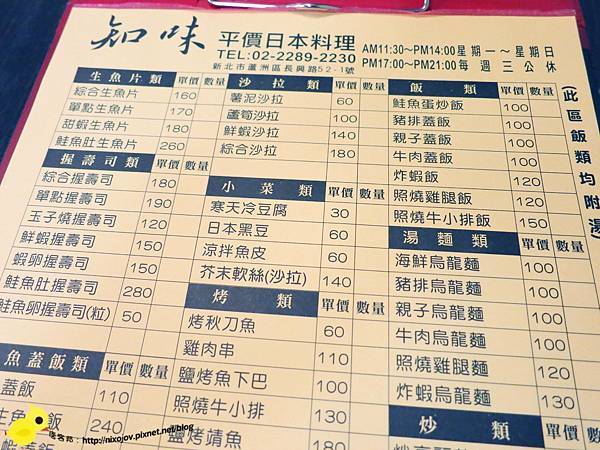 知味 平價日本料理
TEL:02-2289-2230
新北市蘆洲區長興路52-1號
AM11:30~PM14:00星期一~星期日
PM17:00~PM21:00每週三公休
生魚片類 單價 數量
綜合生魚片 160
單點生魚片 170
甜蝦生魚片 180
鮭魚肚生魚片 260
握壽司類 單價 數量
綜合握壽司 180
單點握壽司 190
玉子燒握壽司 120
鮮蝦握壽司 150
蝦卵握壽司 150
鮭魚肚握壽司 280
鮭魚卵握壽司(粒) 50
魚蓋飯類 單價 數量
蓋飯 110
240
沙拉類 單價 數量
薯泥沙拉 60
蘆筍沙拉 100
鮮蝦沙拉 140
綜合沙拉 180
小菜類 單價 數量
寒天冷豆腐 30
日本黑豆 60
涼拌魚皮 60
芥末軟絲(沙拉) 140
烤類 單價 數量
烤秋刀魚 60
雞肉串 110
鹽烤魚下巴 100
照燒牛小排 130
鹽烤鯖魚 180
飯類 單價 數量
鮭魚蛋炒飯 100
豬排蓋飯 100
親子蓋飯 100
牛肉蓋飯 100
炸蝦飯 120
照燒雞腿飯 120
照燒牛小排飯 150
湯麵類 單價 數量
海鮮烏龍麵 100
豬排烏龍麵 100
親子烏龍麵 100
牛肉烏龍麵 100
照燒雞腿麵 120
炸蝦烏龍麵 120
炒類 單價 數量
(此區飯類均附湯)
痞客邦:http://nixojov.pixnet.net/blog